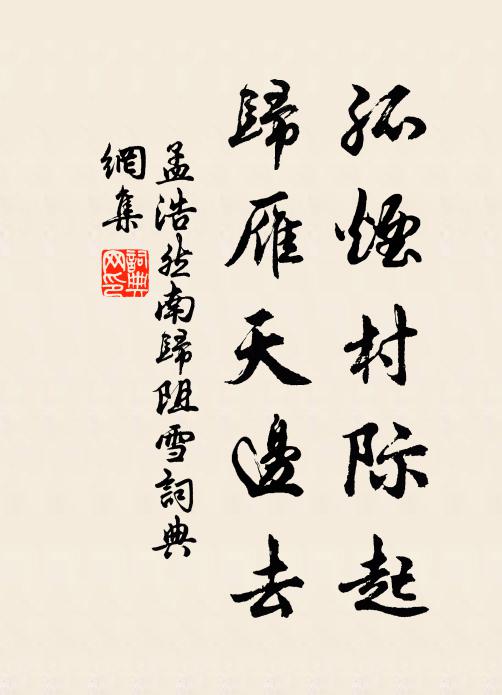 孤煙村际起
歸雁天邊去
孟浩然南歸阻雪詞典
網集
詞典
网印